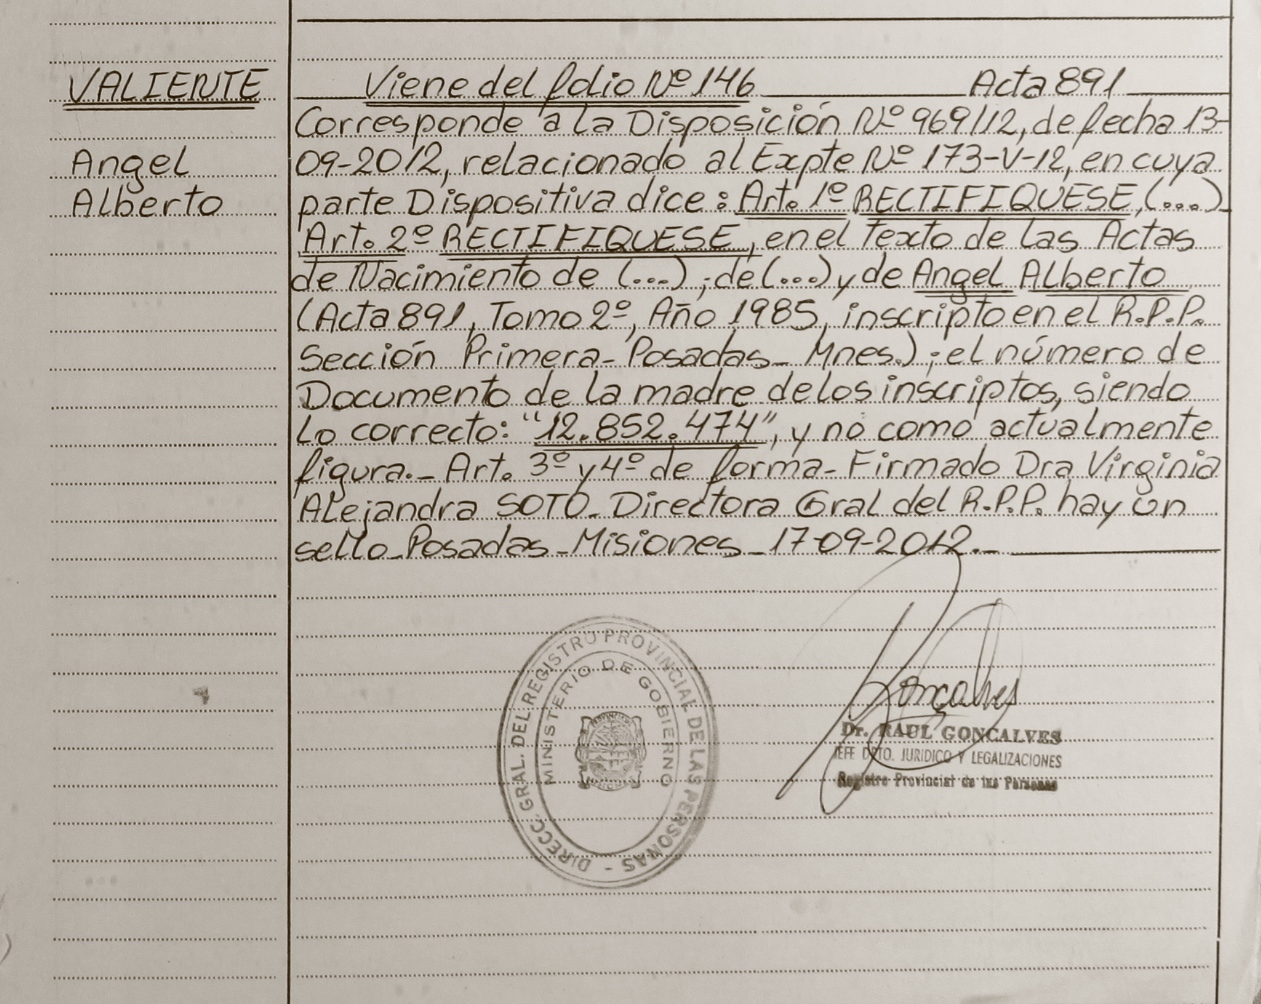 VALIENTE
Angel
Alberto
Viene del folio Nº 146 Acta 891
Corresponde a la Disposición Nº 969/12, de fecha 13-
09-2012, relacionado al Expte Nº 173-V-12, en cuya
parte Dispositiva dice: Art. 1º RECTIFIQUESE, (...)
Art. 2º RECTIFIQUESE, en el texto de las Actas
de Nacimiento de (...) ; de (...) y de Angel Alberto
(Acta 891, Tomo 2º, Año 1985, inscripto en el R.P.P.
Sección Primera- Posadas- Mnes.) ; el número de
Documento de la madre de los inscriptos, siendo
lo correcto: "12.852.474", y no como actualmente
figura.- Art. 3º y 4º de forma- Firmado Dra Virginia
Alejandra SOTO- Directora Gral del R.P.P. hay un
sello- Posadas- Misiones- 17-09-2012.-
DIRECC. GRAL. DEL REGISTRO PROVINCIAL DE LAS PERSONAS -
MINISTERIO DE GOBIERNO
Gonçalves
Dr. RAUL GONCALVES
JEFE DPTO. JURIDICO Y LEGALIZACIONES
Registro Provincial de las Personas